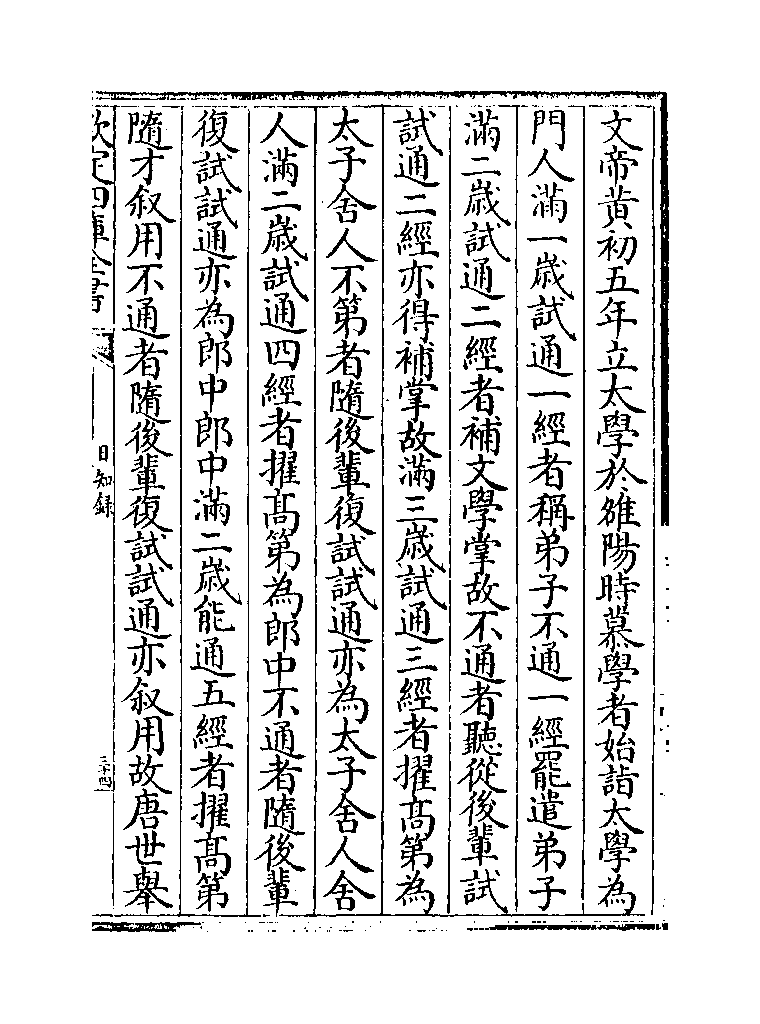 文帝黄初五年立太學於雒陽時慕學者始詣太學為
門人滿一歳試通一經者稱弟子不通一經罷遣弟子
滿二歳試通二經者補文學掌故不通者聽從後輩試
試通二經亦得補掌故滿三歳試通三經者擢髙第為
太子舍人不第者隨後輩復試試通亦為太子舍人舍
人滿二歳試通四經者擢髙第為郎中不通者隨後輩
復試試通亦為郎中郎中滿二歳能通五經者擢髙第
隨才叙用不通者隨後輩復試試通亦叙用故唐世舉
欽定四庫全書
日知録